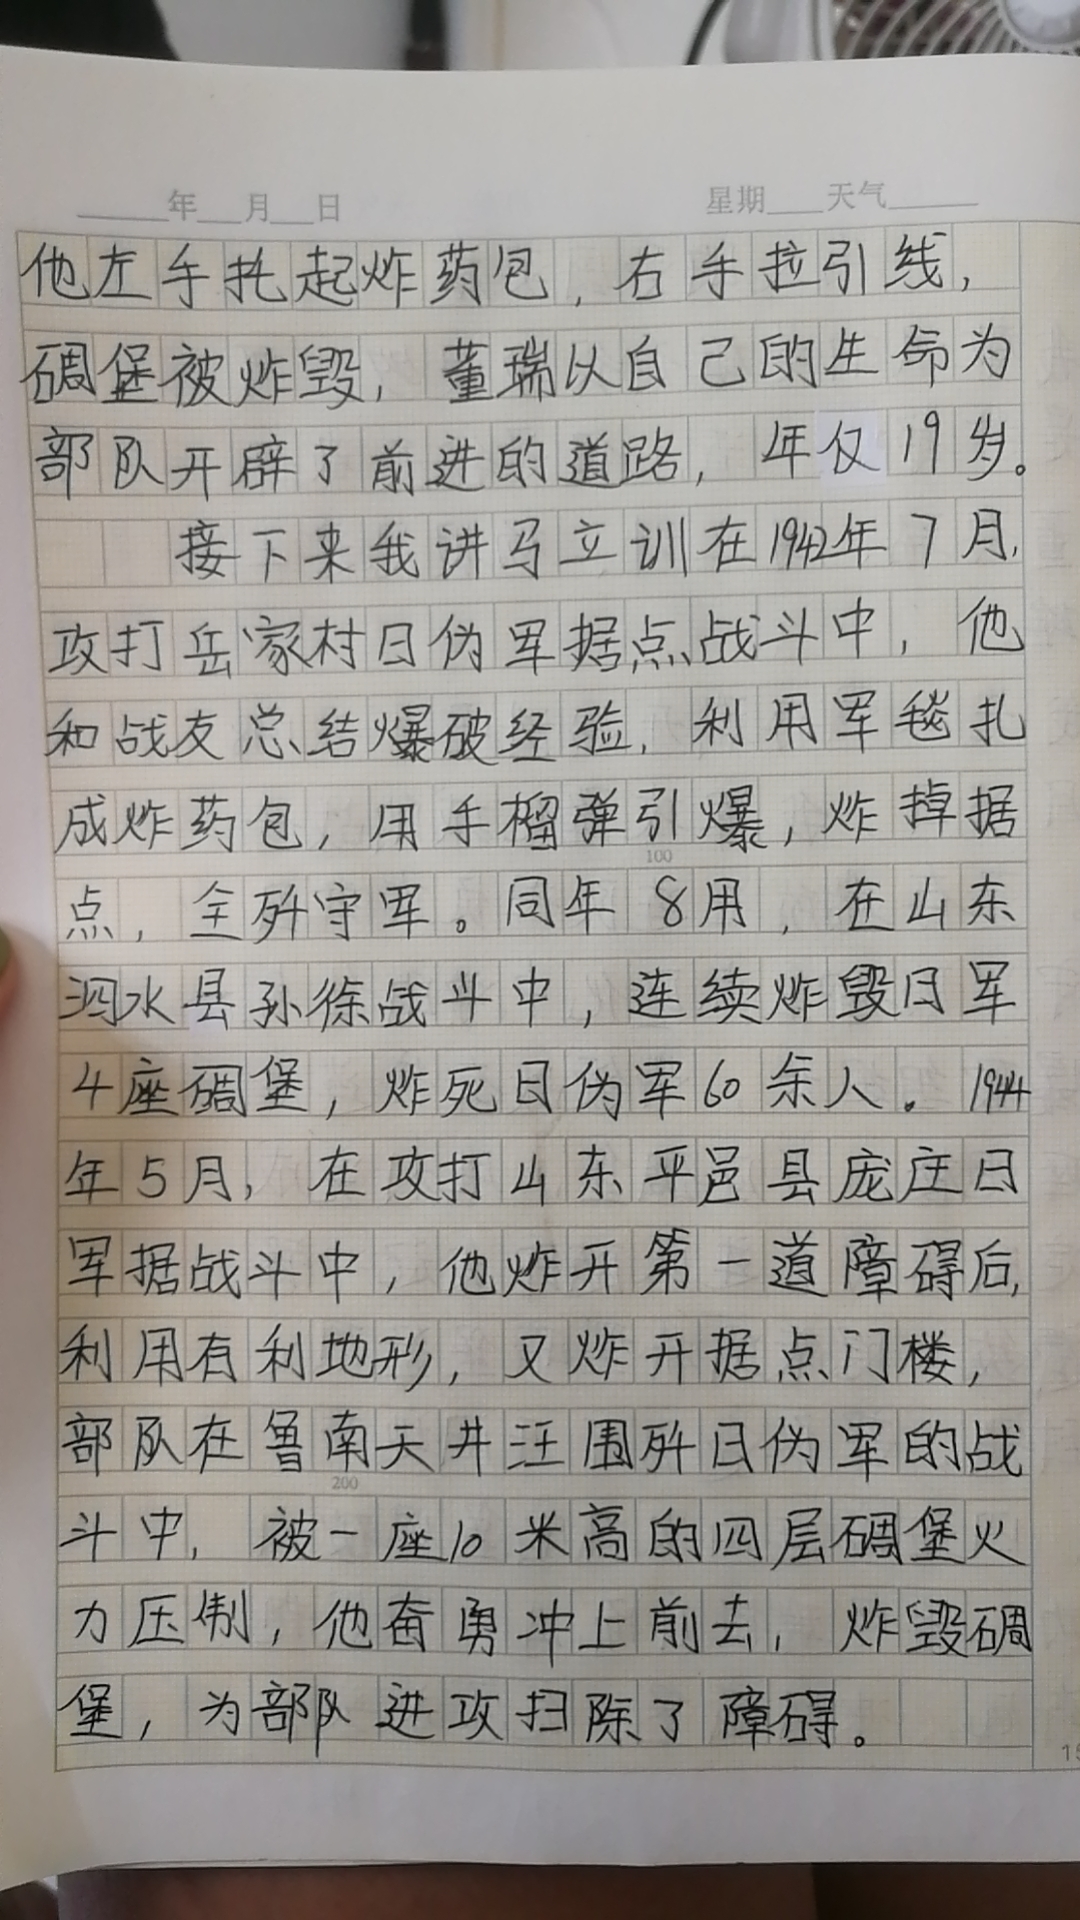 年 月 日 星期 天气
他左手托起炸药包，右手拉引线，
碉堡被炸毁，董瑞以自己的生命为
部队开辟了前进的道路，年仅19岁。
接下来我讲马立训在1942年7月，
攻打岳家村日伪军据点战斗中，他
和战友总结爆破经验，利用军毯扎
成炸药包，用手榴弹引爆，炸掉据
100
点，全歼守军。同年8用，在山东
泗水县孙徐战斗中，连续炸毁日军
4座碉堡，炸死日伪军60余人。1944
年5月，在攻打山东平邑县庞庄日
军据战斗中，他炸开第一道障碍后，
利用有利地形，又炸开据点门楼，
部队在鲁南天井汪围歼日伪军的战
200
斗中，被一座10米高的四层碉堡火
力压制，他奋勇冲上前去，炸毁碉
堡，为部队进攻扫除了障碍。